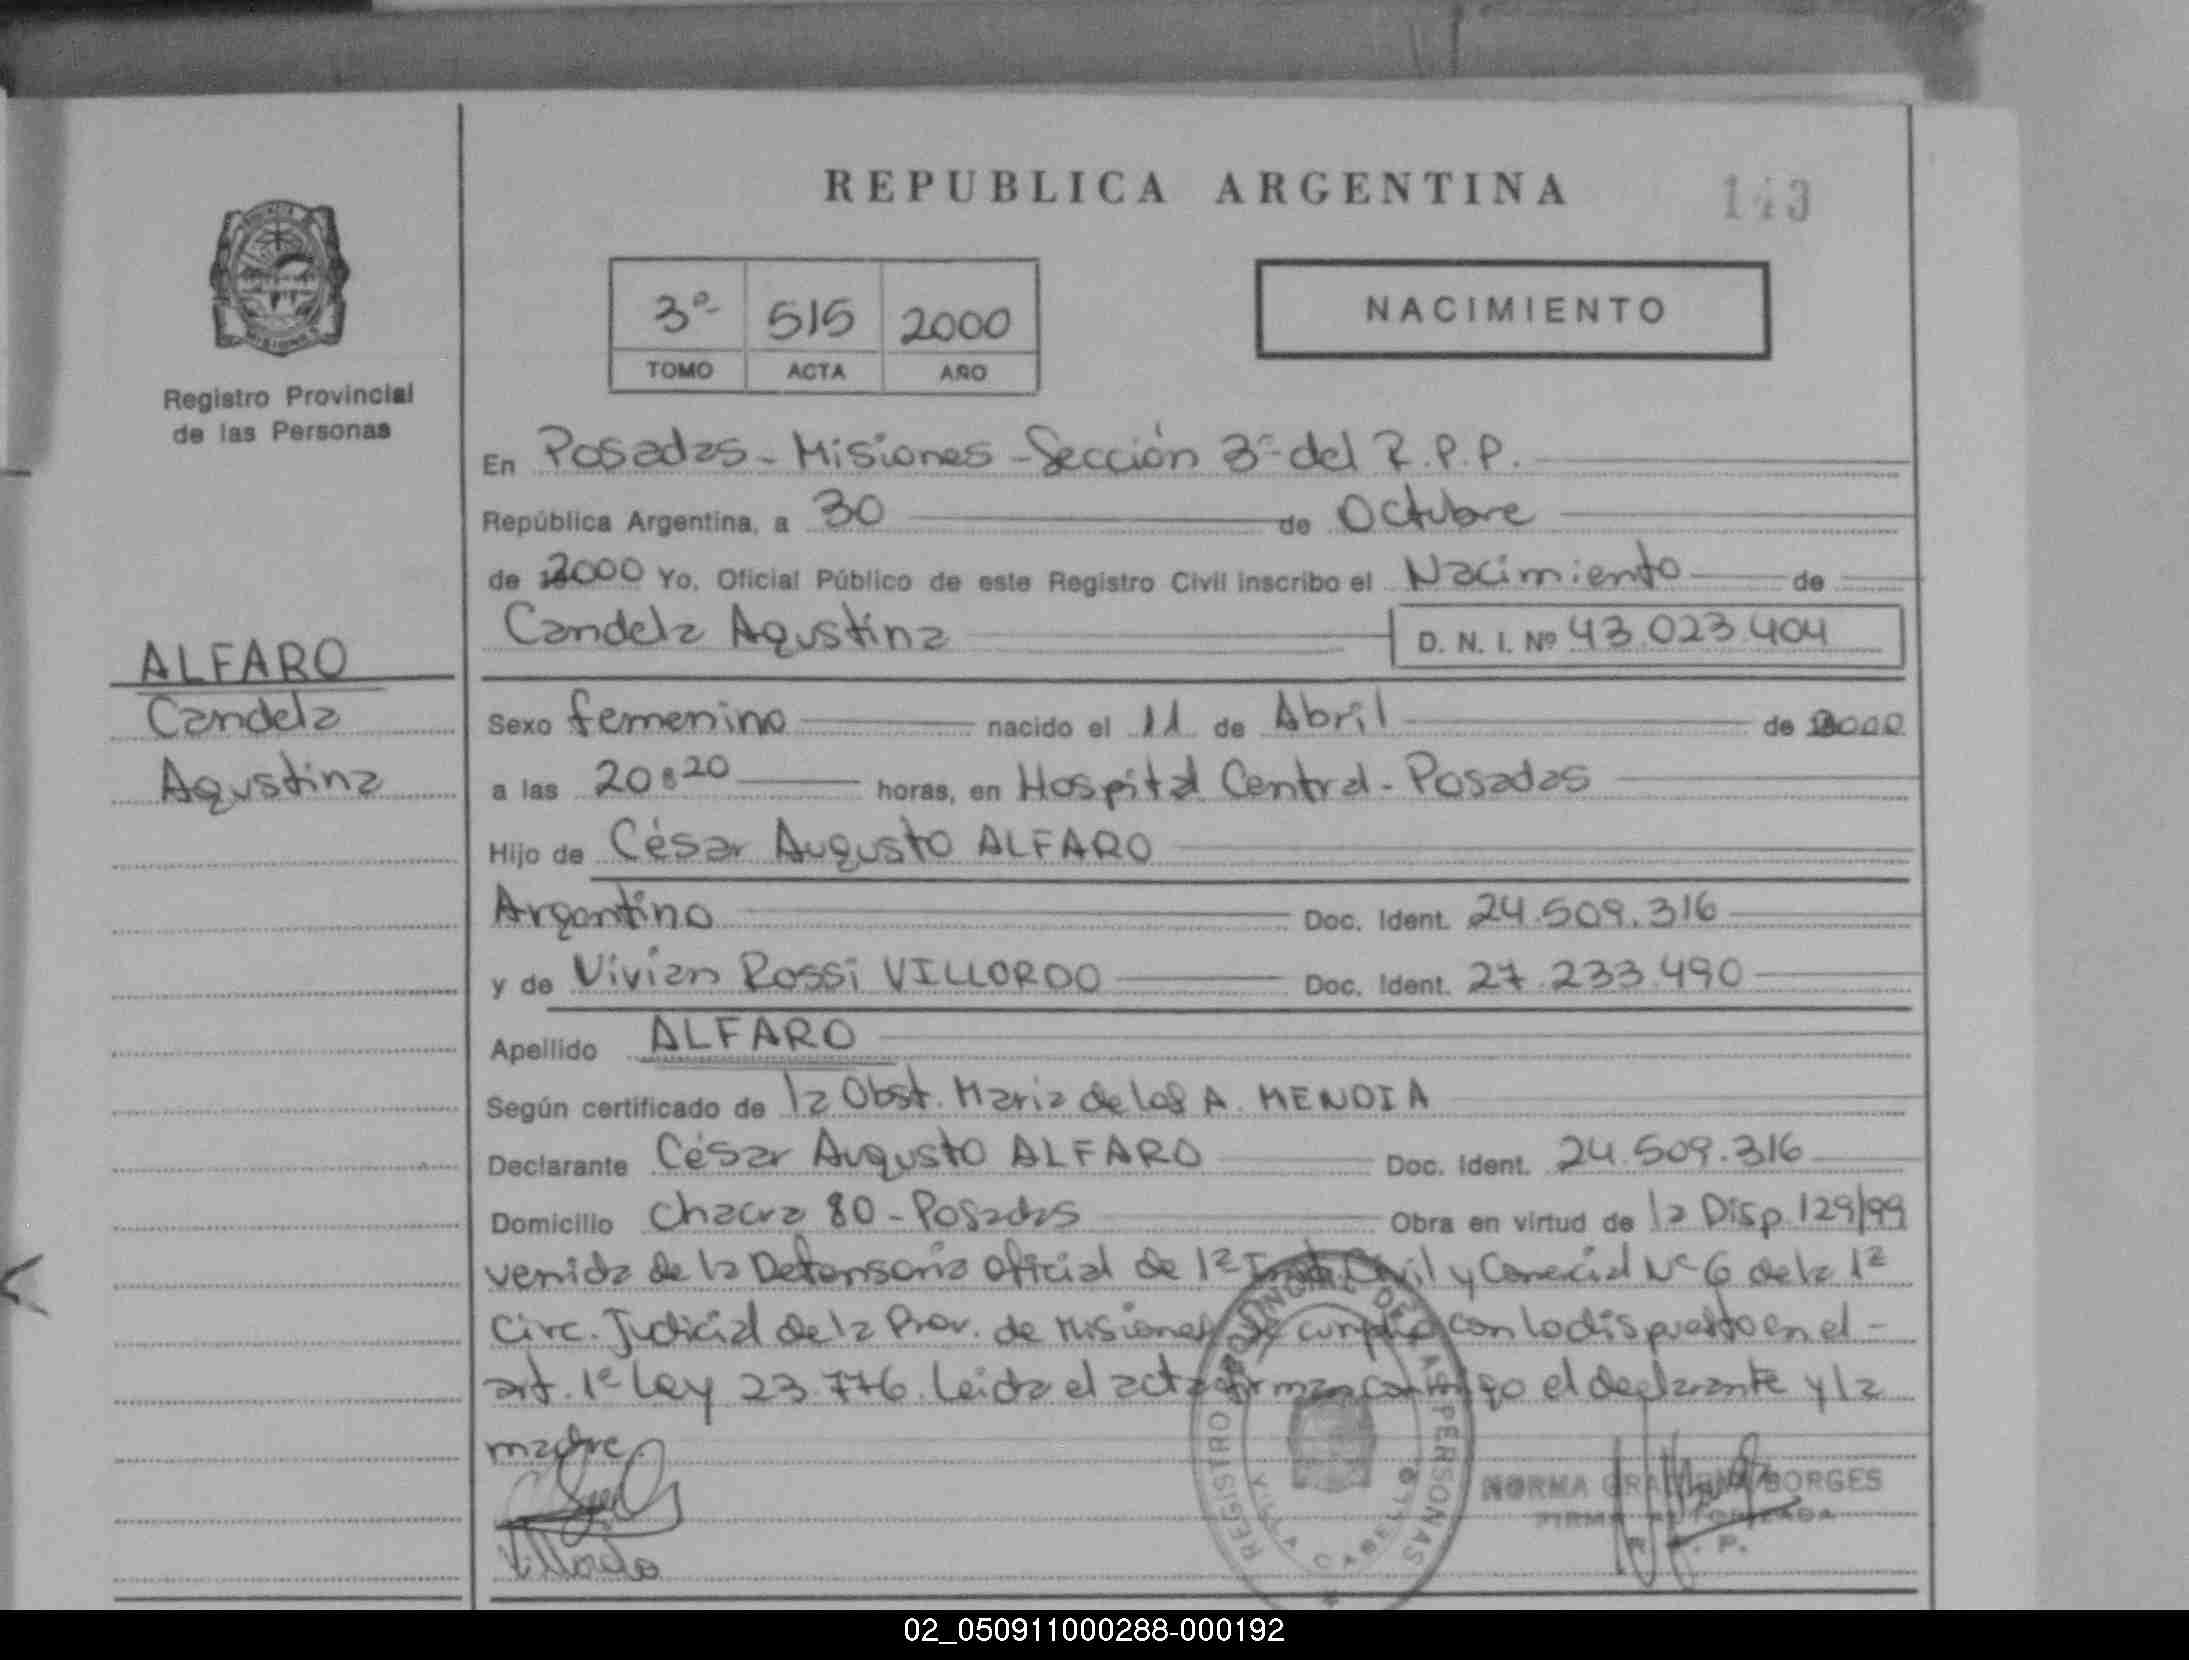 REPUBLICA ARGENTINA
143
3º 515 2000
TOMO ACTA AÑO
NACIMIENTO
Registro Provincial
de las Personas
En Posadas - Misiones - Sección 3º del R.P.P.
República Argentina, a 30 de Octubre
de 2000 Yo, Oficial Público de este Registro Civil inscribo el Nacimiento de
Candela Agustina D. N. I. Nº 43.023.404
ALFARO
Candela
Agustina
Sexo femenino nacido el 11 de Abril de 2000
a las 20:20 horas, en Hospital Central - Posadas
Hijo de César Augusto ALFARO
Argentino Doc. Ident. 24.509.316
y de Vivian Rossi VILLORDO Doc. Ident. 27.233.490
Apellido ALFARO
Según certificado de la Obst. Maria de los A. MENDIA
Declarante César Augusto ALFARO Doc. Ident. 24.509.316
Domicilio Chacra 80 - Posadas Obra en virtud de la Disp. 129/99
venida de la Defensoría Oficial de 1ª Inst. Civil y Comercial Nº 6 de la 1ª
Circ. Judicial de la Prov. de Misiones. Se cumplió con lo dispuesto en el -
art. 1º Ley 23.776. Leida el acta firman conmigo el declarante y la
madre
Villordo
REGISTRO PROVINCIAL DE LAS PERSONAS
VILLA CABELLO
NORMA GRACIELA BORGES
FIRMA AUTORIZADA
R. P. P.
02_050911000288-000192